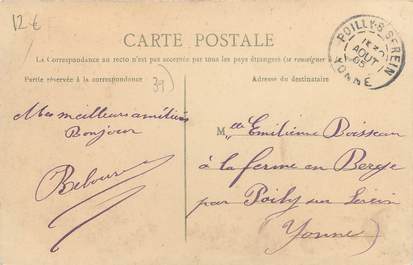 12€
CARTE POSTALE
La Correspondance au recto n'est pas acceptée par tous les pays étrangers (se renseigner
Partie réservée à la correspondance
Adresse du destinataire
39
POILLY-S-SEREIN
AOUT
05
YONNE
Mes meilleurs amitiés
Bonjour
Mlle Emilienne Poisseau
à la ferme en Berge
par Poily sur Serein
Yonne